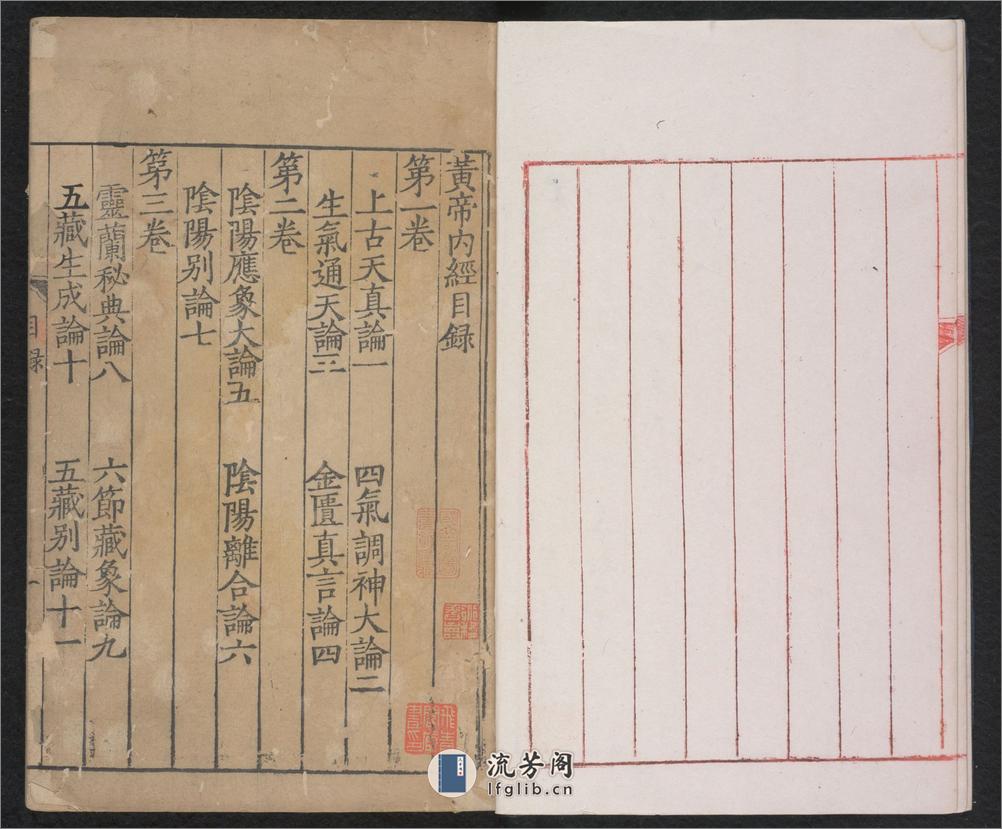 黃帝內經目録
第一卷
上古天真論一 四氣調神大論二
生氣通天論三 金匱真言論四
第二卷
陰陽應象大論五 陰陽離合論六
陰陽别論七
第三卷
靈蘭秘典論八 六節藏象論九
五藏生成論十 五藏别論十一
目録 一
流芳阁
lfglib.cn